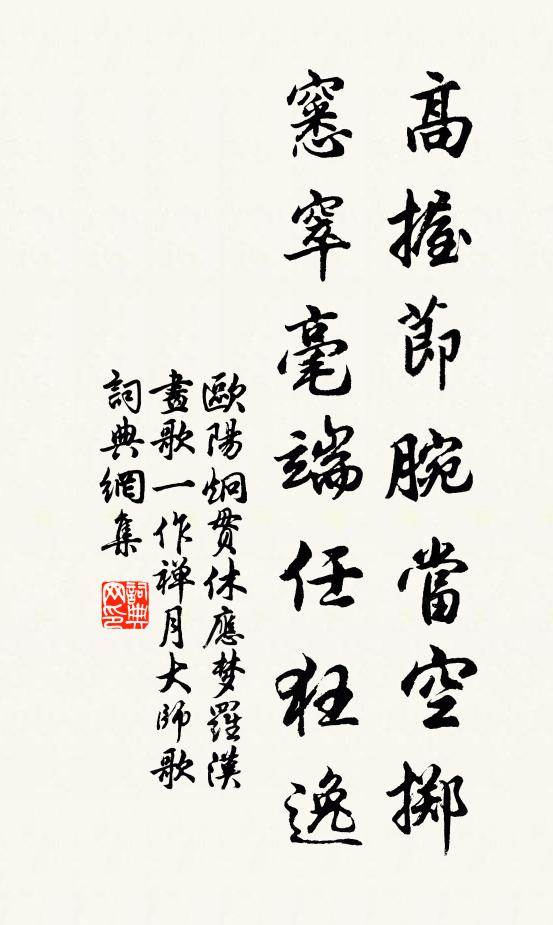 髙握莭腕當空擲
窸窣毫端任狂逸
歐陽炯貫休應梦羅漢
畫歌一作禅月大師歌
詞典網集
詞典网印